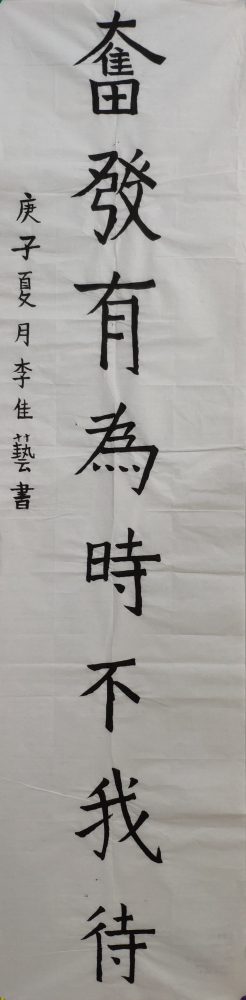 奮發有為時不我待
庚子夏月李佳藝書